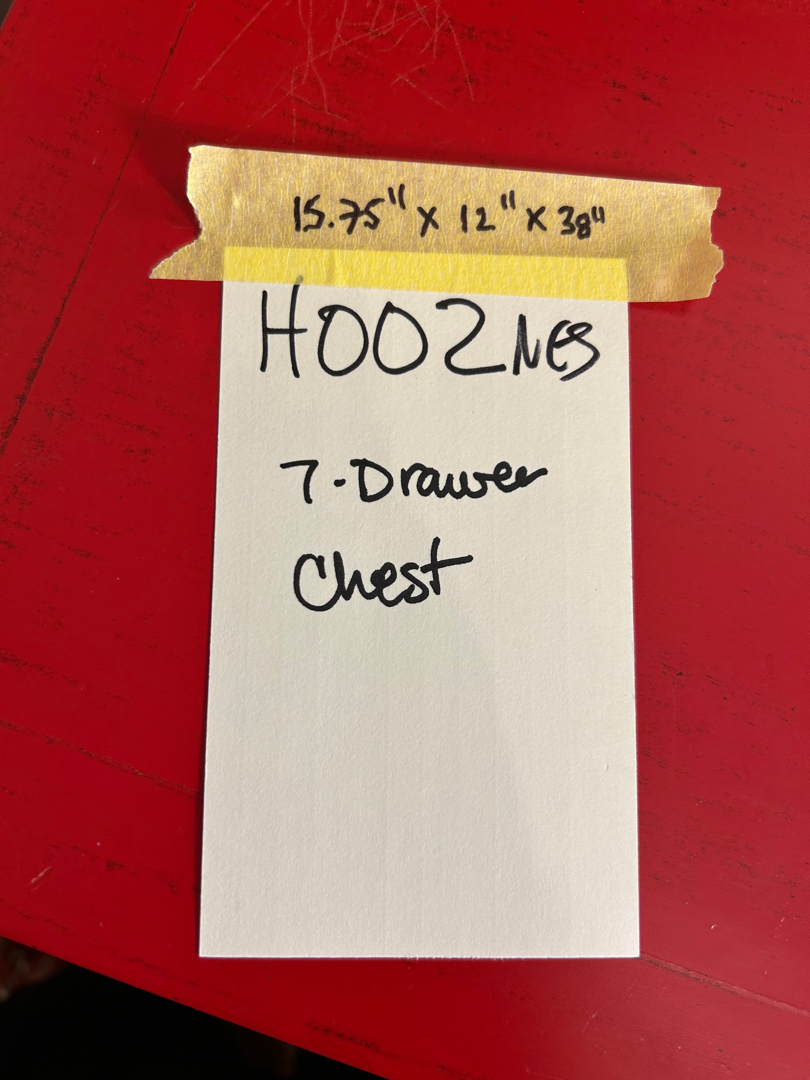 15.75" x 12" x 38"
H002NES
7-Drawer
Chest